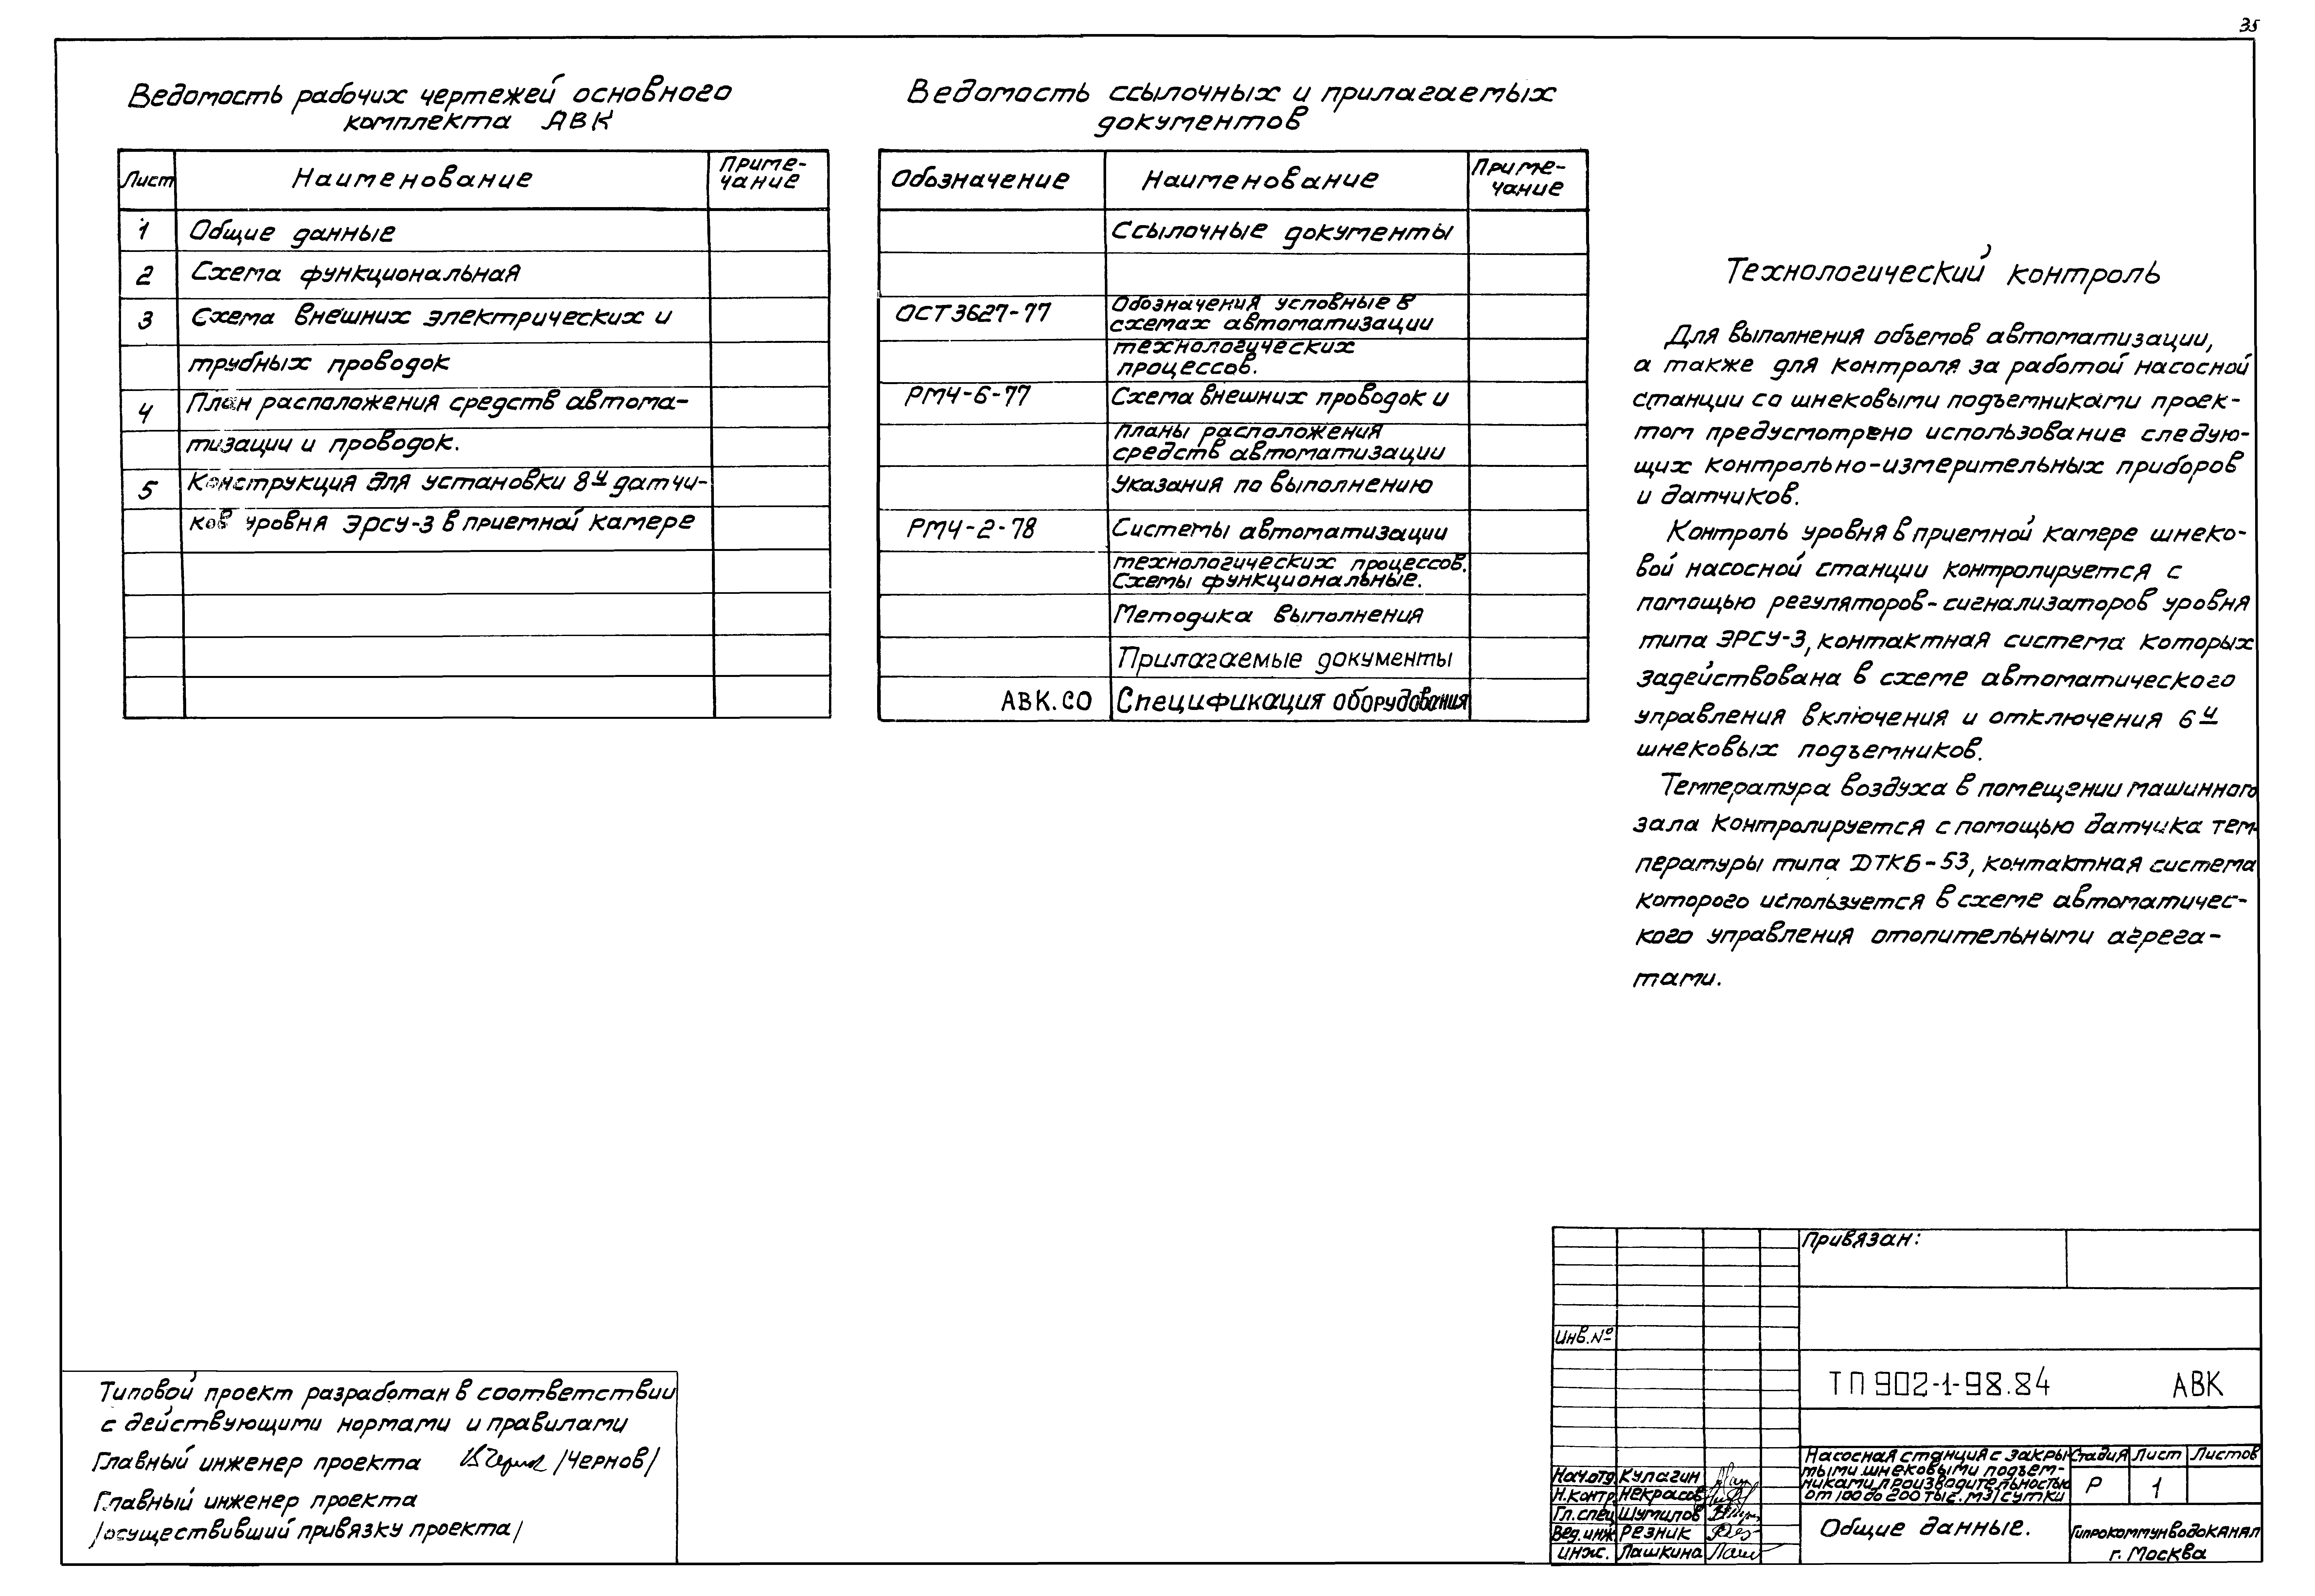 35
Ведомость рабочих чертежей основного
комплекта АВК
Лист Наименование Приме-
чание
1 Общие данные
2 Схема функциональная
3 Схема внешних электрических и
трубных проводок
4 План расположения средств автома-
тизации и проводок.
5 Конструкция для установки 8и датчи-
ков уровня ЭРСУ-3 в приемной камере
Ведомость ссылочных и прилагаемых
документов
Обозначение Наименование Приме-
чание
Ссылочные документы
ОСТ3627-77 Обозначения условные в
схемах автоматизации
технологических
процессов.
РМ4-6-77 Схема внешних проводок и
планы расположения
средств автоматизации
Указания по выполнению
РМ4-2-78 Системы автоматизации
технологических процессов.
Схемы функциональные.
Методика выполнения
Прилагаемые документы
АВК.СО Спецификация оборудования
Технологический контроль
Для выполнения объемов автоматизации,
а также для контроля за работой насосной
станции со шнековыми подъемниками проек-
том предусмотрено использование следую-
щих контрольно-измерительных приборов
и датчиков.
Контроль уровня в приемной камере шнеко-
вой насосной станции контролируется с
помощью регуляторов-сигнализаторов уровня
типа ЭРСУ-3, контактная система которых
задействована в схеме автоматического
управления включения и отключения 6и
шнековых подъемников.
Температура воздуха в помещении машинного
зала контролируется с помощью датчика тем-
пературы типа ДТКБ-53, контактная система
которого используется в схеме автоматичес-
кого управления отопительными агрега-
тами.
Типовой проект разработан в соответствии
с действующими нормами и правилами
Главный инженер проекта /Чернов/
Главный инженер проекта
/осуществивший привязку проекта/
Привязан:
Инв.№
ТП 902-1-98.84 АВК
Насосная станция с закры-
тыми шнековыми подъем-
никами производительностью
от 100 до 200 тыс. м3/сутки
Стадия Лист Листов
Р 1
Нач.отд. Кулагин
Н.контр. Некрасов
Гл.спец Шумилов
Вед.инж. Резник
инж. Лашкина
Общие данные.
Гипрокоммунводоканал
г. Москва